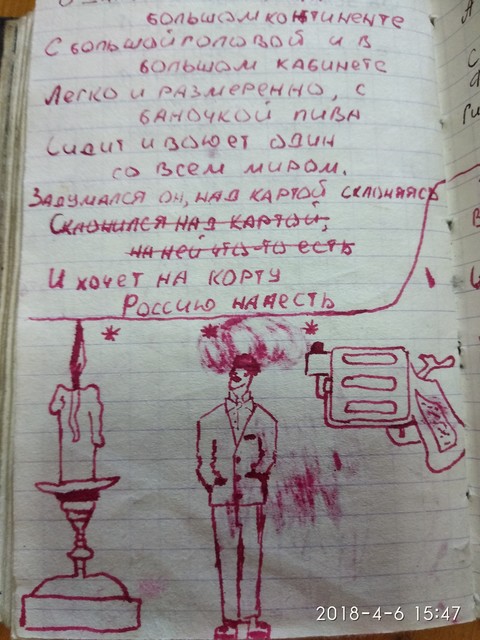 БОЛЬШОМ КОНТИНЕНТЕ
С БОЛЬШОЙ ГОЛОВОЙ И В
БОЛЬШОМ КАБИНЕТЕ
ЛЕГКО И РАЗМЕРЕННО, С
БАНОЧКОЙ ПИВА
СИДИТ И ВОЮЕТ ОДИН
СО ВСЕМ МИРОМ.
ЗАДУМАЛСЯ ОН, НАД КАРТОЙ СКЛОНЯЯСЬ
СКЛОНИЛСЯ НАД КАРТОЙ,
НА НЕЙ ЧТО-ТО ЕСТЬ
И ХОЧЕТ НА КОРТУ
РОССИЮ НАНЕСТЬ
2018-4-6 15:47